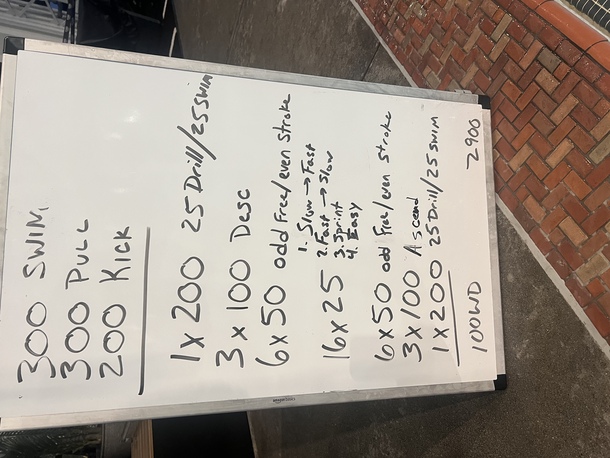 300 SWIM
300 PULL
200 KICK
1 x 200 25 Drill/25 SWIM
3 x 100 Desc
6x50 odd Free/even stroke
16x25
1. Slow → Fast
2. Fast → Slow
3. Sprint
4. Easy
6x50 odd Free/even stroke
3 x 100 Ascend
1 x 200 25 Drill/25 SWIM
100 WD 2900